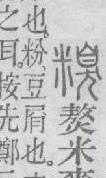 糗熬米麥
也。粉豆屑也。
之耳。按先鄭